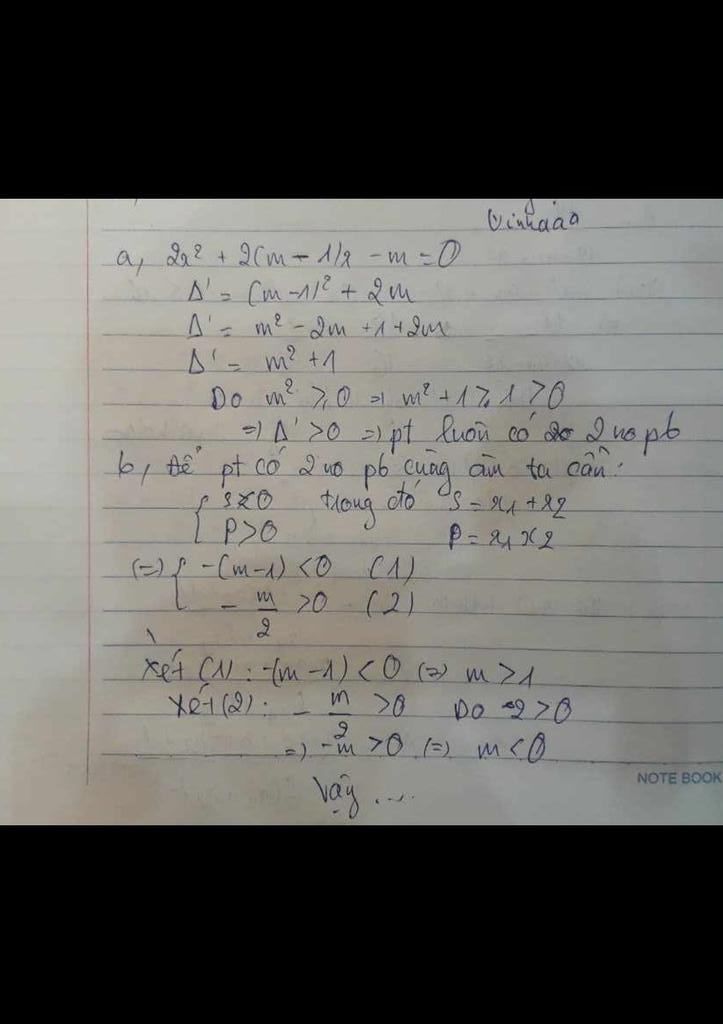 a, 2x² + 2(m - 1)x - m = 0
Δ' = (m - 1)² + 2m
Δ' = m² - 2m + 1 + 2m
Δ' = m² + 1
Do m² ≥ 0 => m² + 1 ≥ 1 > 0
=> Δ' > 0 => pt luôn có 2 no pb
b, Để pt có 2 no pb cùng âm ta cần:
{ S < 0 trong đó S = x₁ + x₂
P > 0 P = x₁ x₂
(=) { -(m-1) < 0 (1)
- m/2 > 0 (2)
Xét (1) : -(m - 1) < 0 (=) m > 1
Xét (2) : - m/2 > 0 Do 2 > 0
=> -m > 0 (=) m < 0
Vậy ....
NOTE BOOK